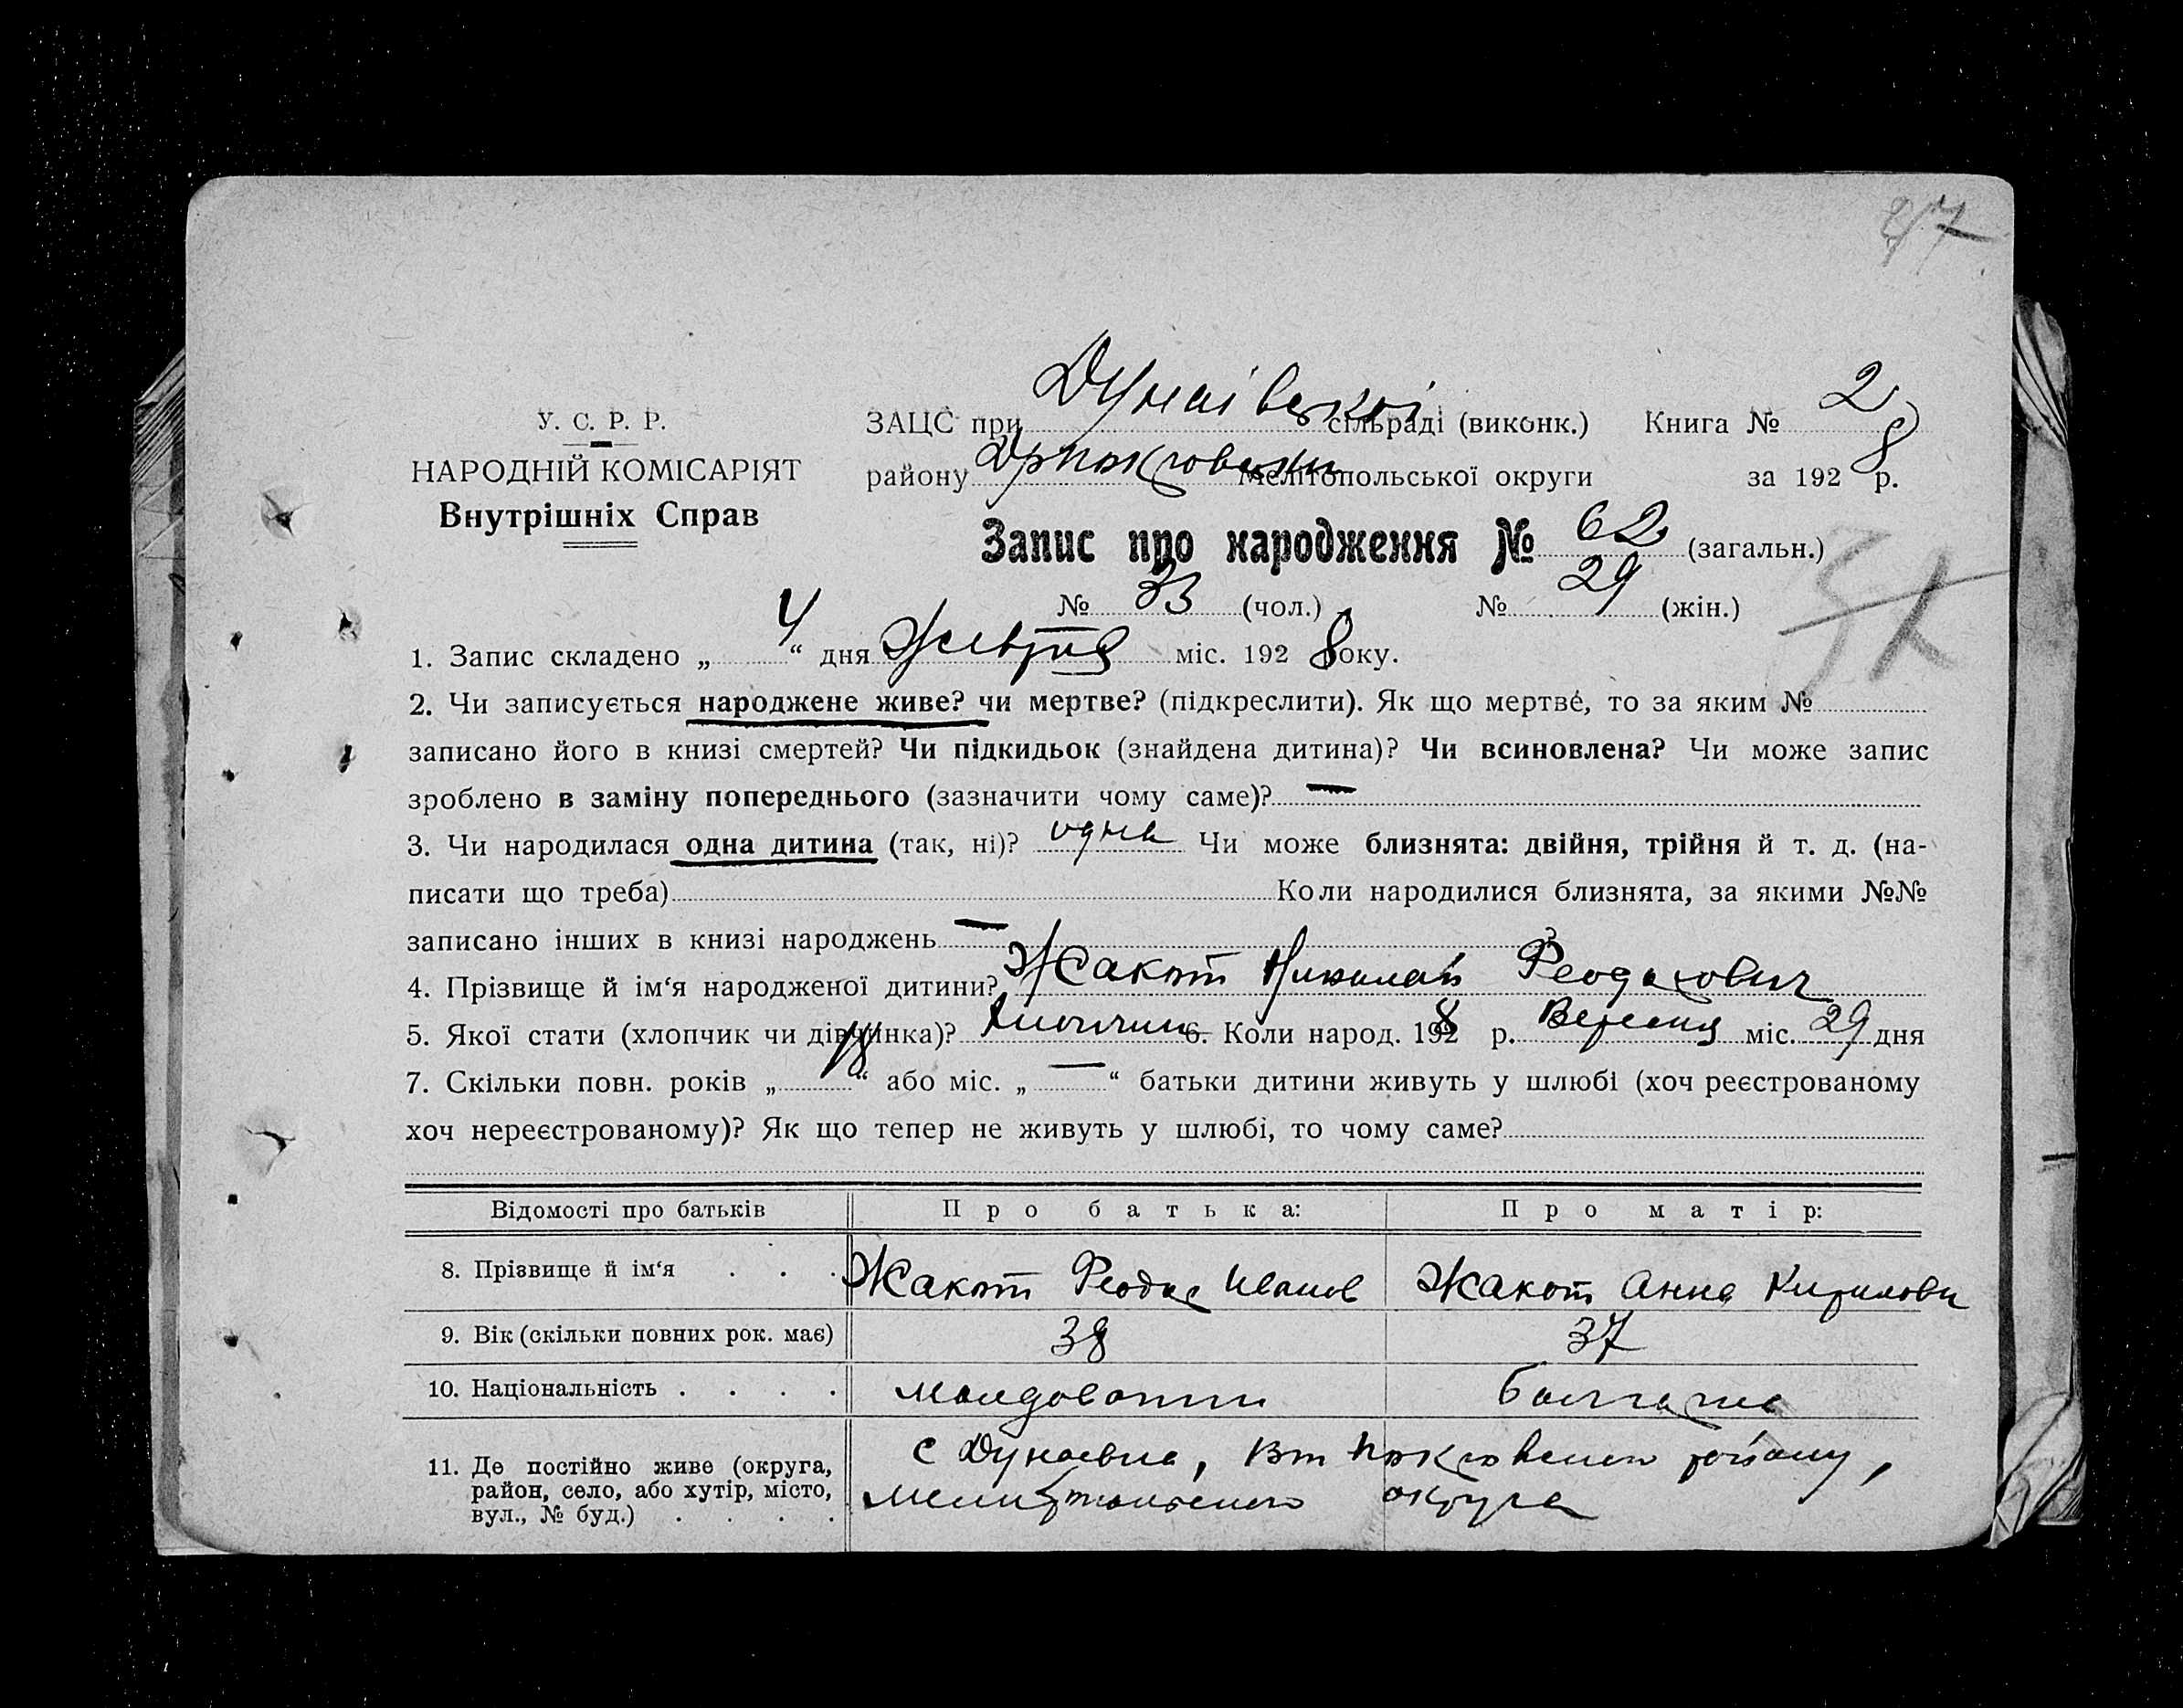 47
У. С. Р. Р.
НАРОДНІЙ КОМІСАРІЯТ
Внутрішніх Справ
ЗАЦС при Дунаівській сільраді (виконк.) Книга № 2
району Мелітопольської округи за 1928 р.
Запис про народження № 62 (загальн.)
№ 33 (чол.) № 29 (жін.)
1. Запис складено „ 4 “ дня Жовтня міс. 1928 року.
2. Чи записується народжене живе? чи мертве? (підкреслити). Як що мертве, то за яким №
записано його в книзі смертей? Чи підкидьок (знайдена дитина)? Чи всиновлена? Чи може запис
зроблено в заміну попереднього (зазначити чому саме)? —
3. Чи народилася одна дитина (так, ні)? одна Чи може близнята: двійня, трійня й т. д. (на-
писати що треба) Коли народилися близнята, за якими №№
записано інших в книзі народжень — ?
4. Прізвище й ім‘я народженої дитини? Жакот Николай Феодосович
5. Якої стати (хлопчик чи дівчинка)? хлопчик 6. Коли народ. 1928 р. Вересня міс. 29 дня
7. Скільки повн. років „ 18 “ або міс. „ — “ батьки дитини живуть у шлюбі (хоч реєстрованому
хоч нереєстрованому)? Як що тепер не живуть у шлюбі, то чому саме?
Відомості про батьків Про батька: Про матір:
8. Прізвище й ім‘я . . . Жакот Феодос Иванов Жакот Анна Кирилови
9. Вік (скільки повних рок. має) 38 37
10. Національність . . . . молдованин болгарка
11. Де постійно живе (округа, с Дунаевка, району,
район, село, або хутір, місто, Мелитопольского округа
вул., № буд.) . . . .